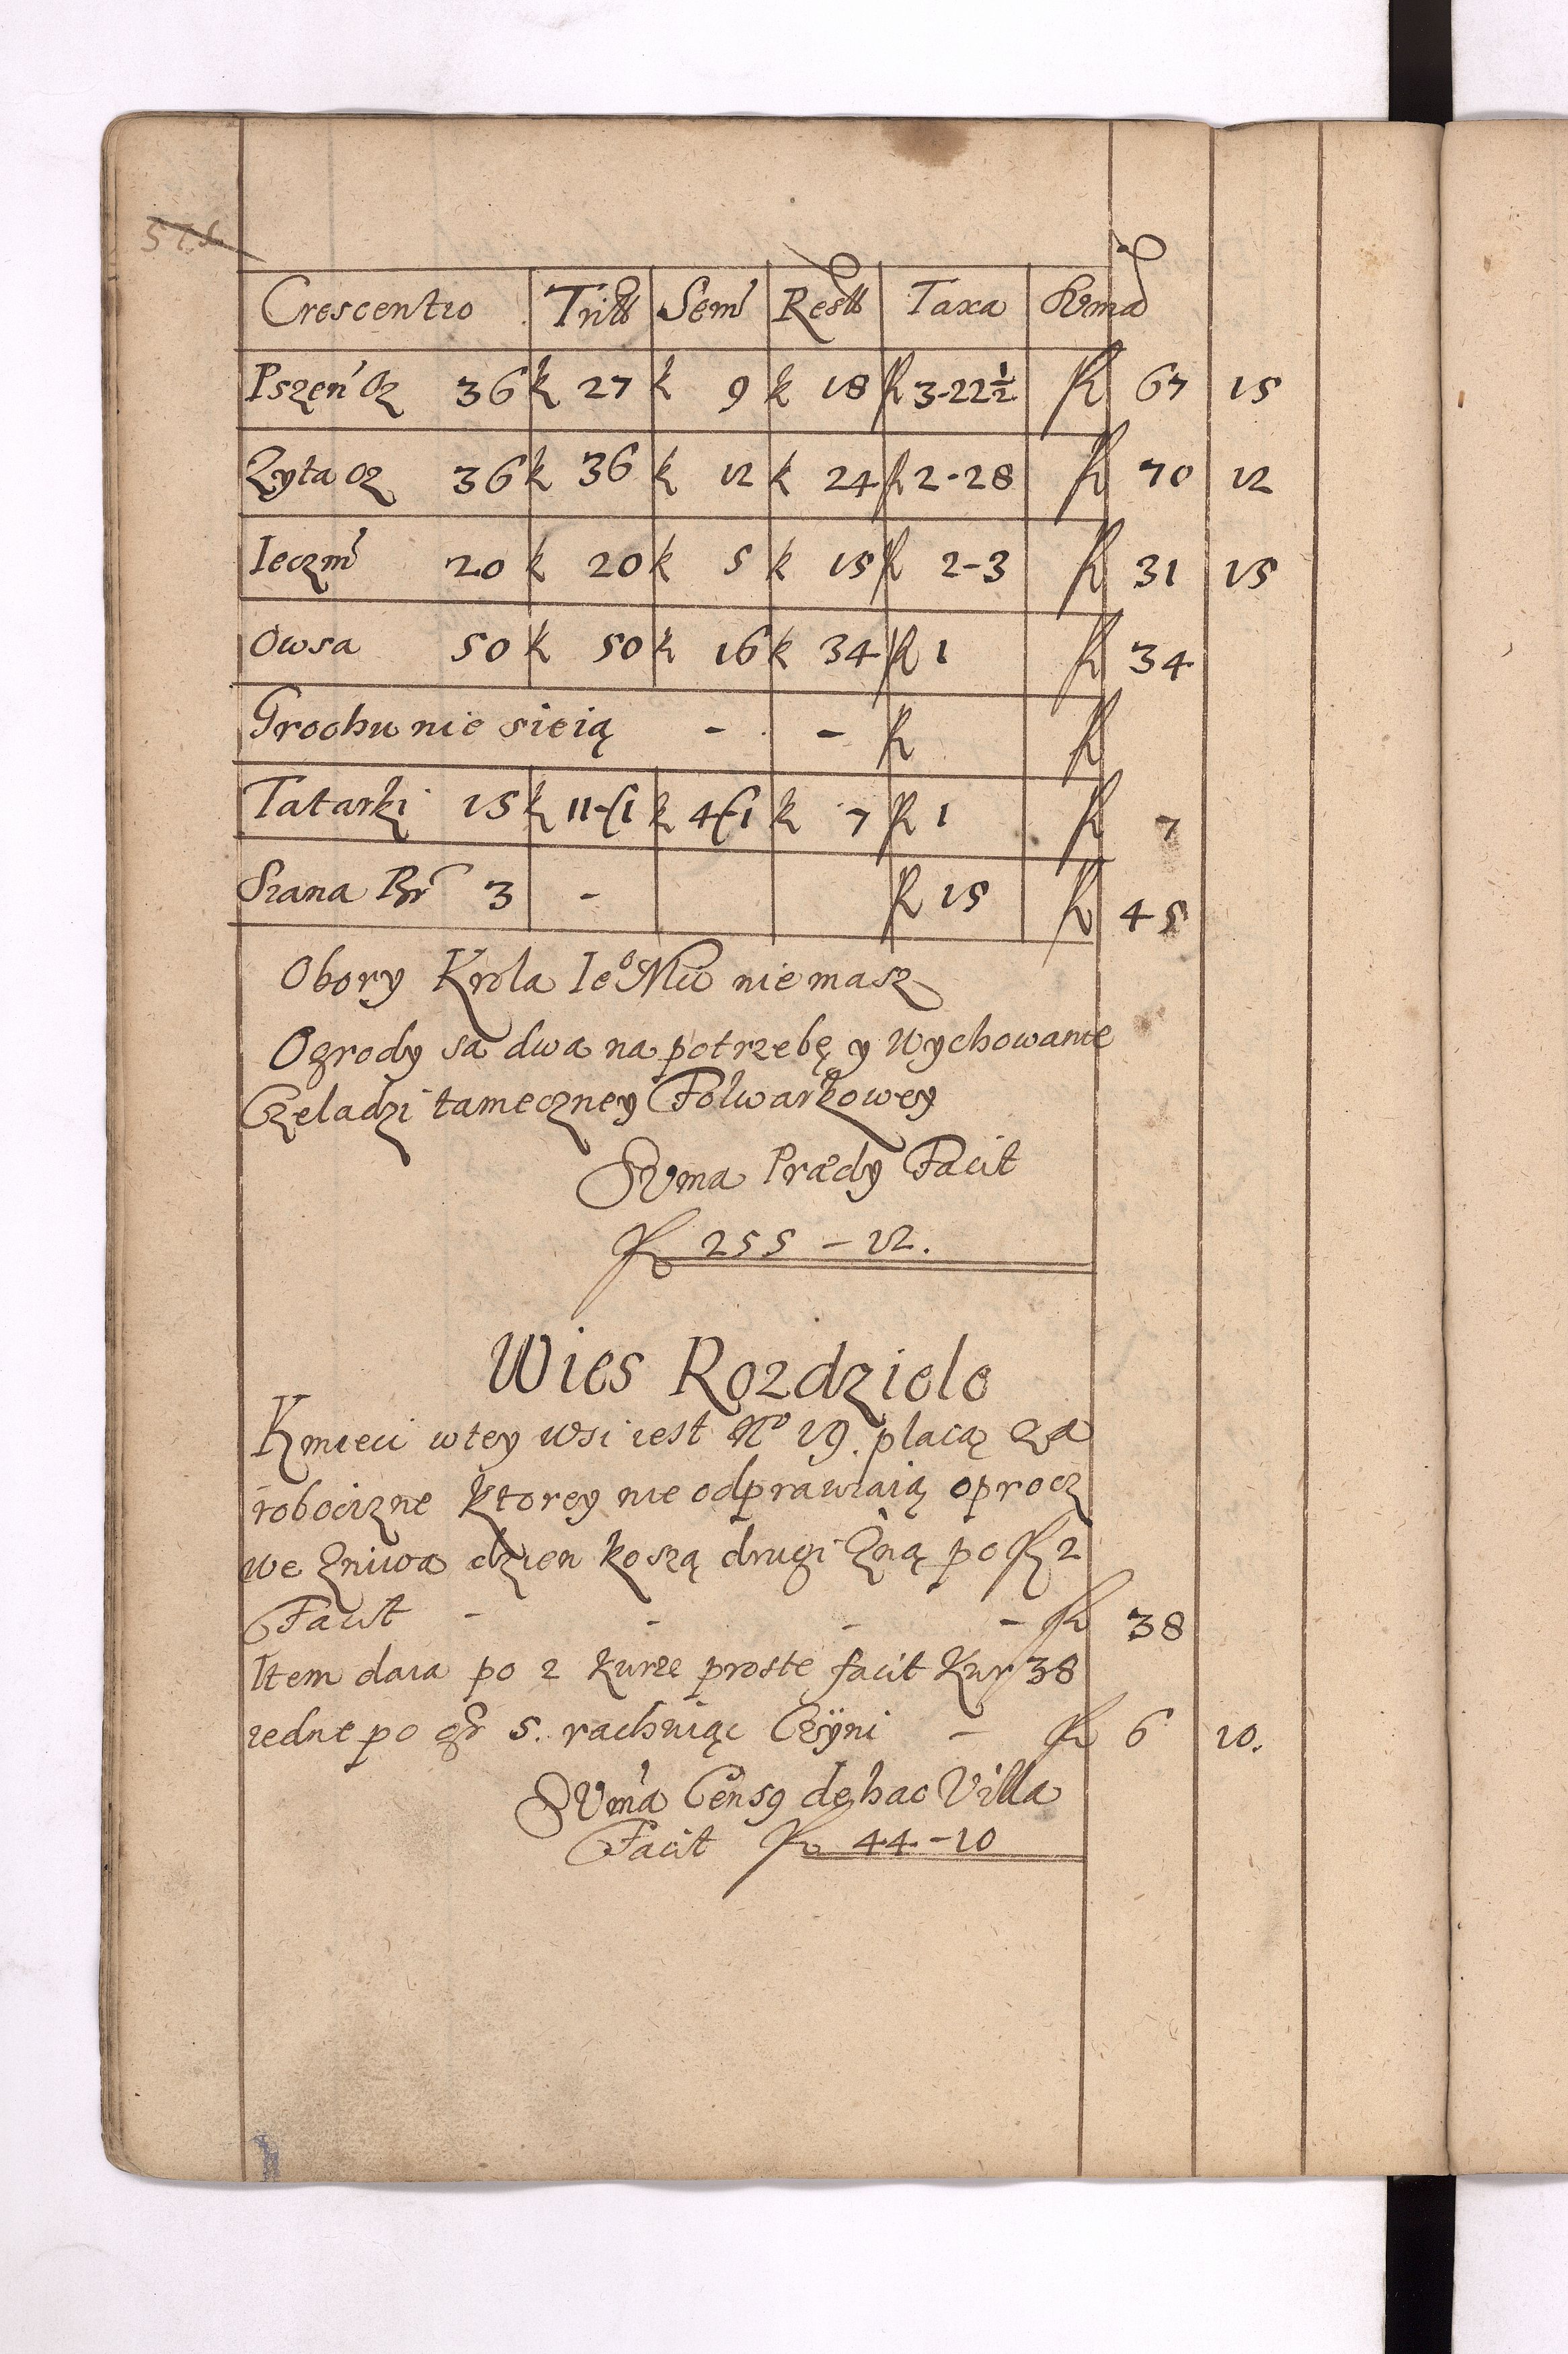 Crescentio Tritt Sem Restt Taxa Suma
Pszen Oz 36 k 27 k 9 k 18 f 3-22½ f 67 15
Zyta oz 36 k 36 k 12 k 24 f 2-28 f 70 12
Ieczm 20 k 20 k 5 k 15 f 2-3 f 31 15
Owsa 50 k 50 k 16 k 34 f 1 f 34
Grochu nie sieią - - f f
Tatarki 15 k 11-1 k 4-1 k 7 f 1 f 7
Siana Br 3 - f 15 f 45
Obory Krola Ieº Mci nie masz
Ogrody sa dwa na potrzebę y Wychowanie
Czeladzi tameczney Folwarkowey
Suma Prædy Facit
f 255 - 12.
Wies Rozdziele
Kmieci w tey wsi iest Nº 19. placą za
robocizne ktorey nie odprawiaią oprocz
we Zniwa dzien koszą drugi Zną po f 2
Facit - - - - f 38
Item daia po 2 kurze proste facit Kur 38
iedne po gr 5. rachuiąc Czÿni - f 6 10.
Suma Censq de hac Villa
Facit f 44-10